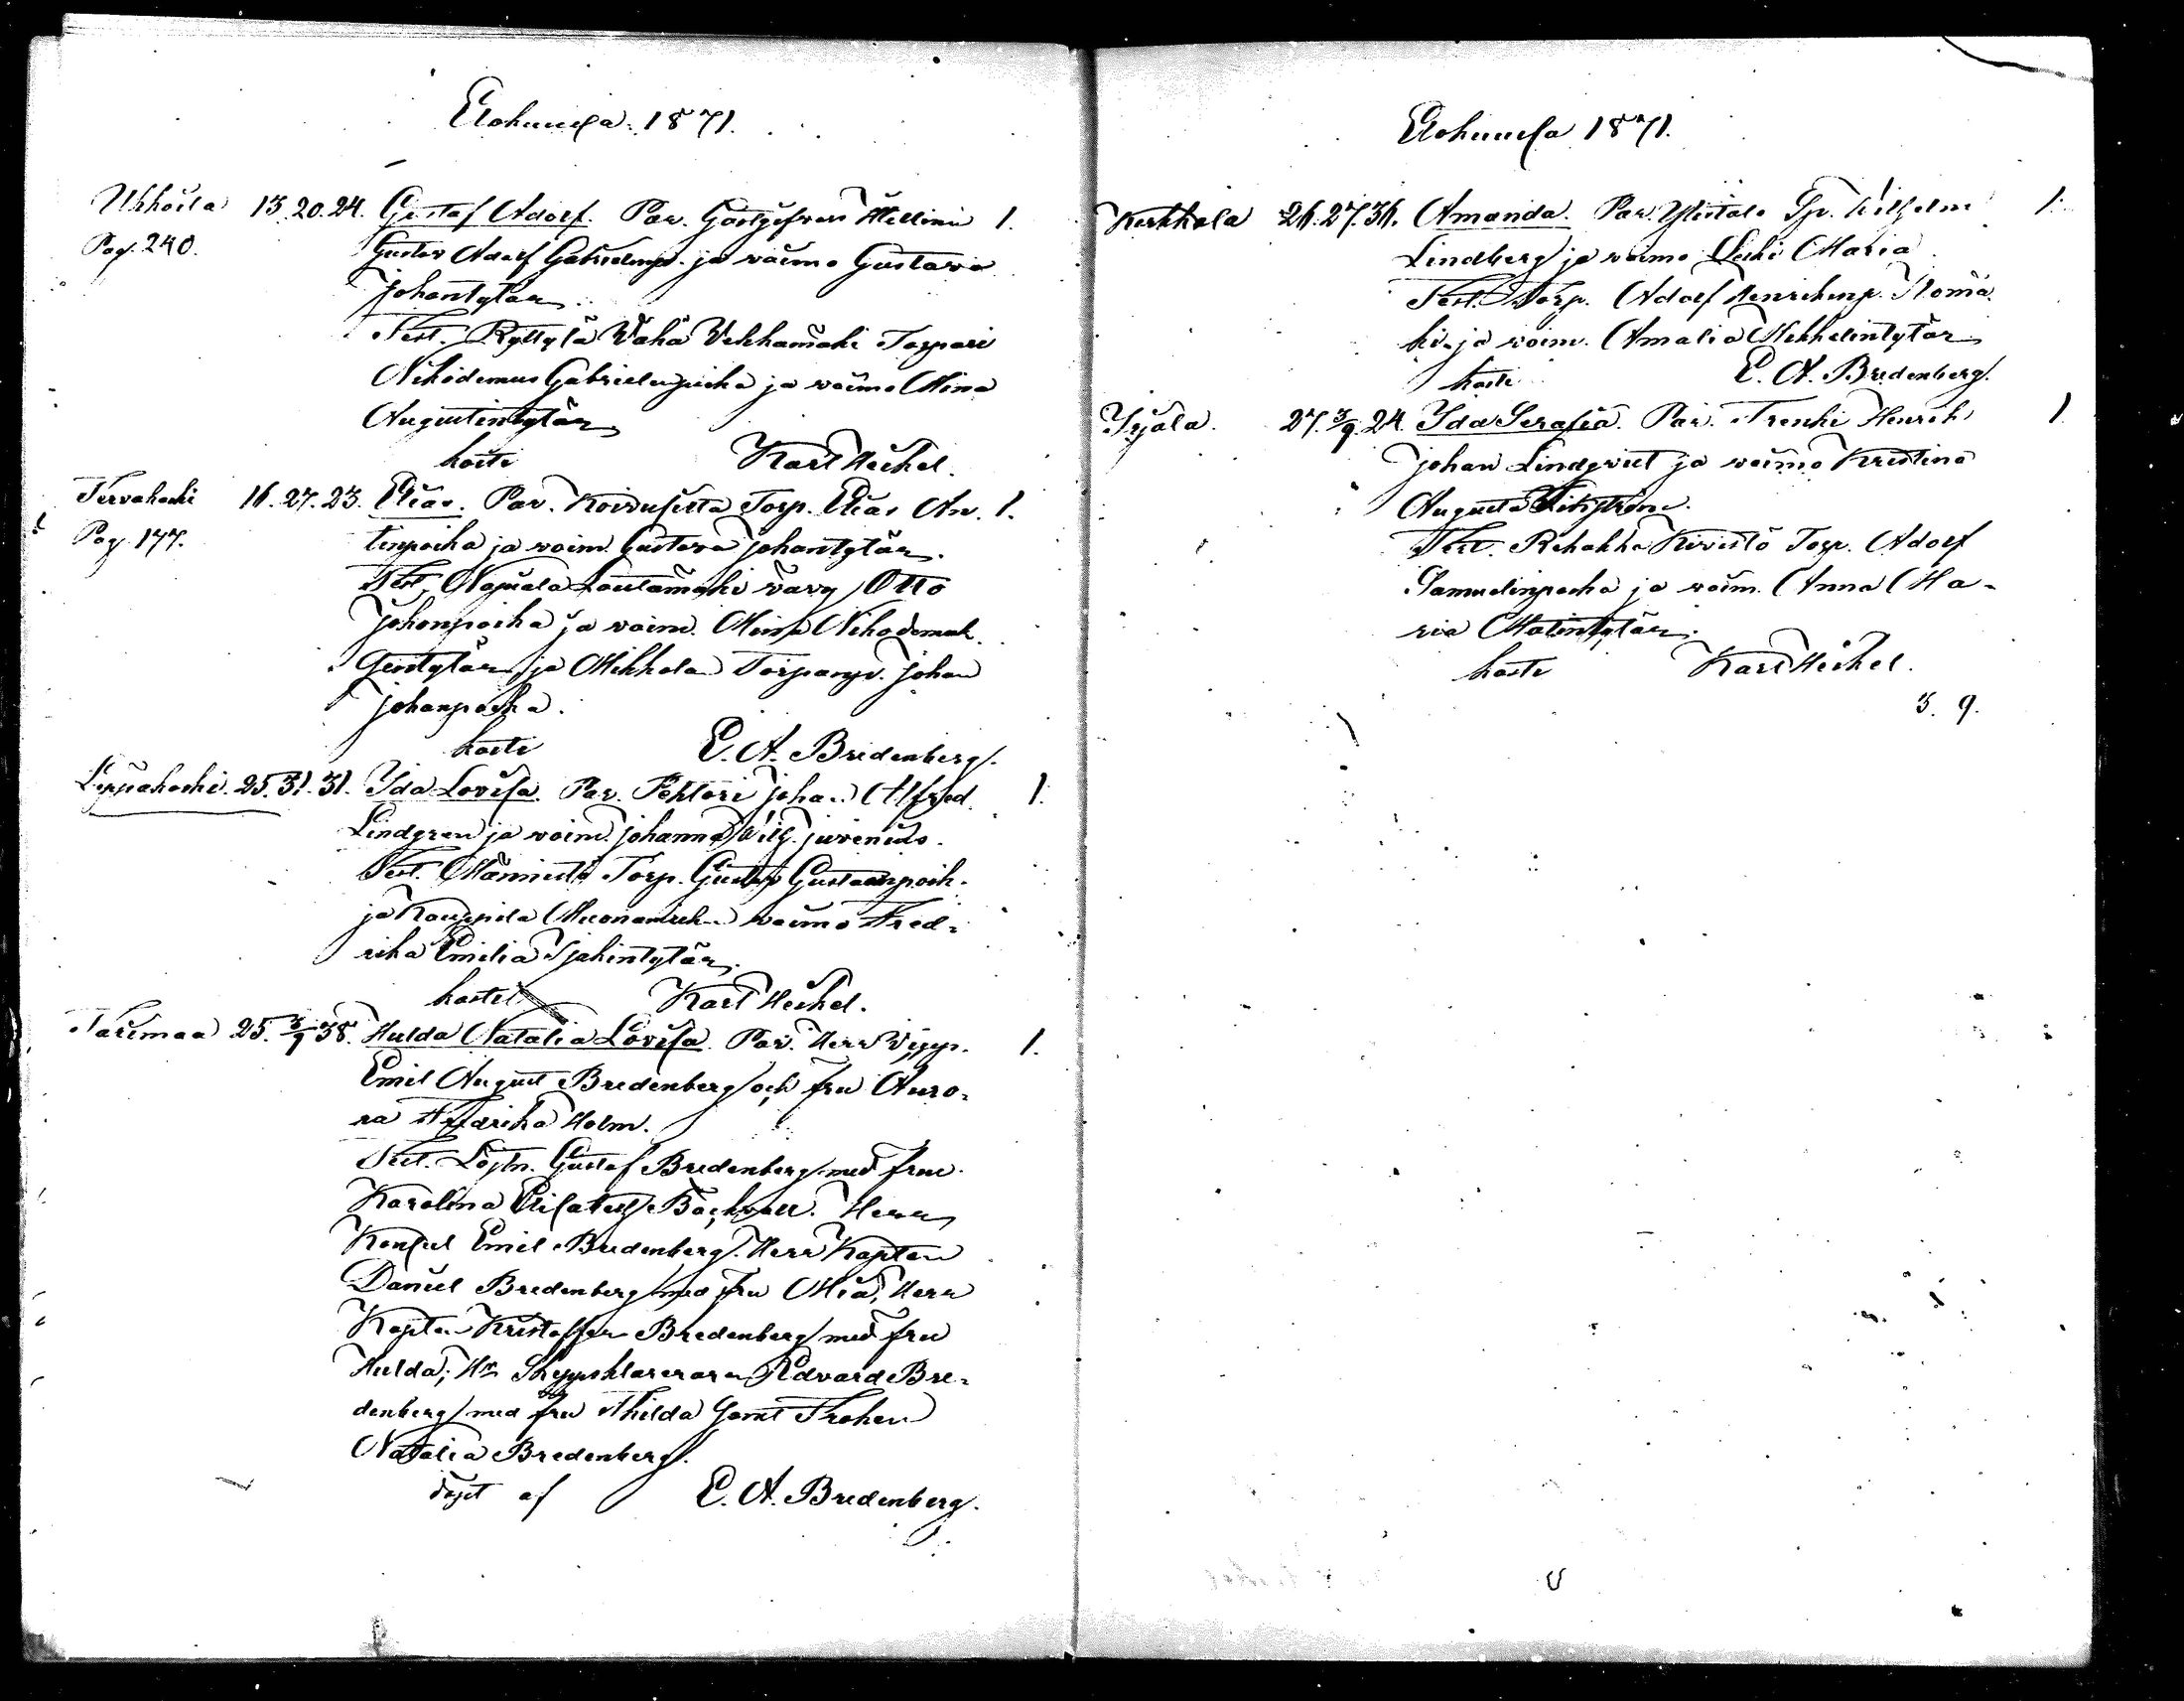 Elokuussa 1871.
Uhkoila 13. 20. 24. Gustaf Adolf. Par. Gästgifvari Hellini 1.
Pag. 240. Gustav Adolf Gabrielinp. ja vaimo Gustava
Johantytär
Test. Ryttylä Vähä Vehkamäki Torpari
Nikodemus Gabrielinpoika ja vaimo Mina
Augustintytär
kaste Karl Heikel.
Tervakoski 16. 27. 23. Elias. Par. Torp. Elias An- 1.
Pag. 177. tinpoika ja vaim. Gustava Johantytär.
Test. Otto
Johanpoika ja vaim. Miina Nikodemuk-
sentytär ja Mikkola Johan
Johanpoika.
kaste E. A. Bredenberg.
Leppäkoski. 25. 31. 31. Ida Lovisa. Par. Pehtori Johan Alfred 1.
Lindgren ja vaim. Johanna Vilh. Juvenius.
Test. Männistö Torp. Gustav Gustavinpoik.
ja Kauppila Muonamieh. vaimo Fred-
rika Emilia
kaste Karl Heikel.
Tarimaa 25. 3/9 38. Hulda Natalia Lovisa. Par. Herr
Emil August Bredenberg och fru Auro- 1.
ra Fredrika Holm.
Test. Löjtn. Gustaf Bredenberg med fru
Karolina Elisabeth Herr
Konsul Emil Bredenberg. Herr Kapten
Daniel Bredenberg med fru Mia, Herr
Kapten Kristoffer Bredenberg med fru
Hulda; Hr Skeppsklareraren Edvard Bre-
denberg med fru Thilda samt Fröken
Natalia Bredenberg.
döpt af E. A. Bredenberg.
Elokuussa 1871.
Kerkkola 26. 27. 36. Amanda. Par. Vilhelm 1.
Lindberg ja vaimo Maria
Test. Torp. Adolf Henrikinp.
ki ja vaim. Amalia Mikkelintytär
kaste E. A. Bredenberg.
Yrjälä. 27. 3/9. 24. Ida Serafia. Par. Trenki Henrik 1
Johan Lindqvist ja vaimo Kristina
Augusta
Test. Rehakka Kivistö Torp. Adolf
Samuelinpoika ja vaim. Anna Ma-
ria Matintytär.
kaste Karl Heikel.
3. 9.